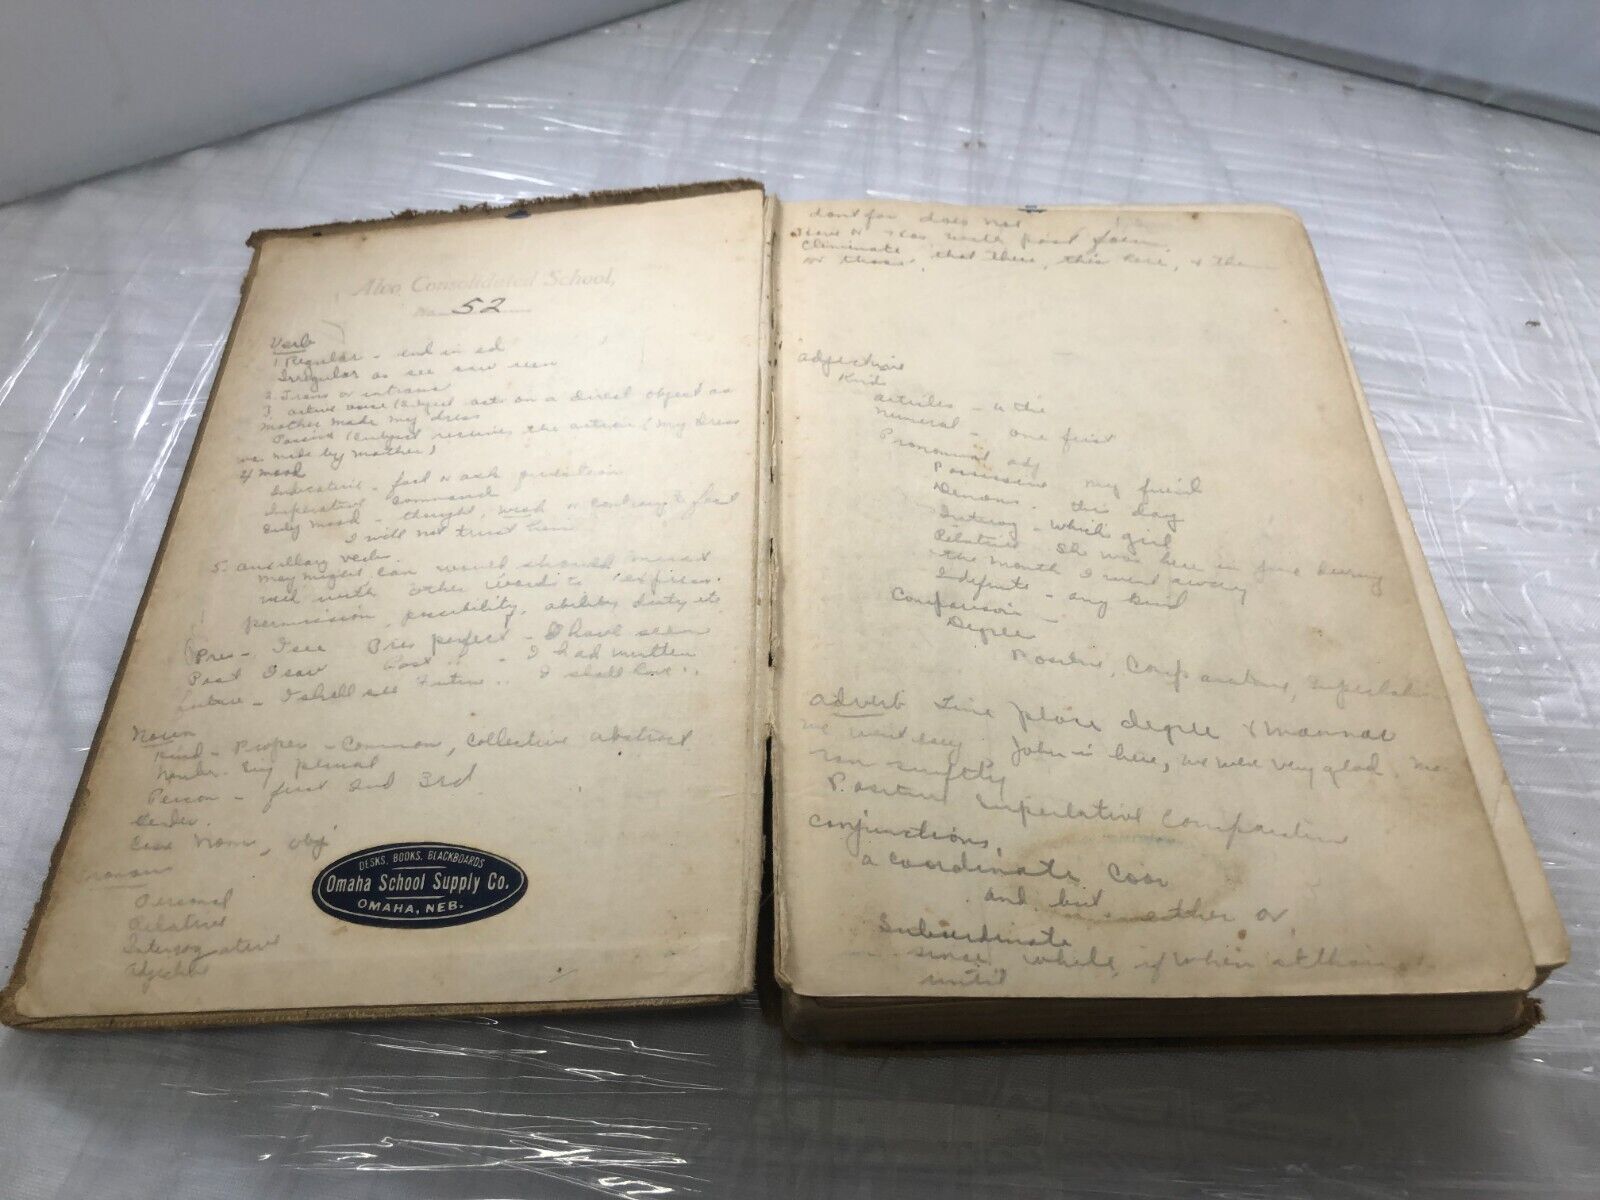 Alvo Consolidated School,
No. 52
Verb
1 Regular - end in ed
Irregular as see saw seen
2. Trans or intrans
3. active voice (Subject acts on a direct object as
mother made my dress
Passive (Subject receives the action (my dress
was made by mother)
4 mood
Indicative - fact or ask question
Imperative command
Subj mood - thought, wish or contrary to fact
I will not trust him
5. auxillary verbs
may might can would should must
used with other words to express
permission, possibility, ability duty etc
Pres - I see Pres perfect - I have seen
Past I saw Past " - I had written
future - I shall see Future " I shall have "
Noun
Kind - Proper - Common, Collective abstract
Number - Sing plural
Person - first 2nd 3rd.
Gender.
Case Nom, obj
Pronoun
Personal
Relative
Interrogative
Adjective
DESKS, BOOKS, BLACKBOARDS
Omaha School Supply Co.
OMAHA, NEB.
dont for does not
with past form
Eliminate that there, this here, & them
or those.
adjective
Kinds
articles - a the
Numeral - one first
Pronominal adj
Possessive my friend
Demons. this day
Interrog - which girl
Relative - She was here in June during
the month I went away
Indefinite - any kind
Comparison -
Degree
Positive, Comparative, Superlative
adverb Time place degree & manner
we went John is here, we were very glad.
ran swiftly
Positive Superlative Comparative
Conjunctions,
a coordinate Coor
and but either or
Subordinate
since while, if when
until